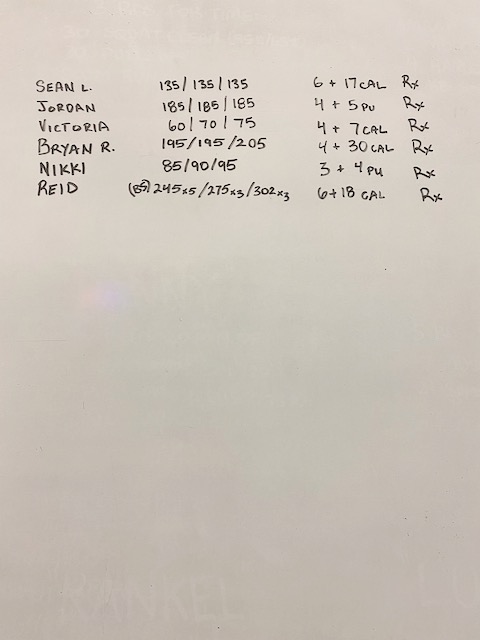 SEAN L. 135/135/135 6 + 17 CAL Rx
JORDAN 185/185/185 4 + 5 PU Rx
VICTORIA 60/70/75 4 + 7 CAL Rx
BRYAN R. 195/195/205 4 + 30 CAL Rx
NIKKI 85/90/95 3 + 4 PU Rx
REID 245x5/275x3/302x3 6+18 CAL Rx